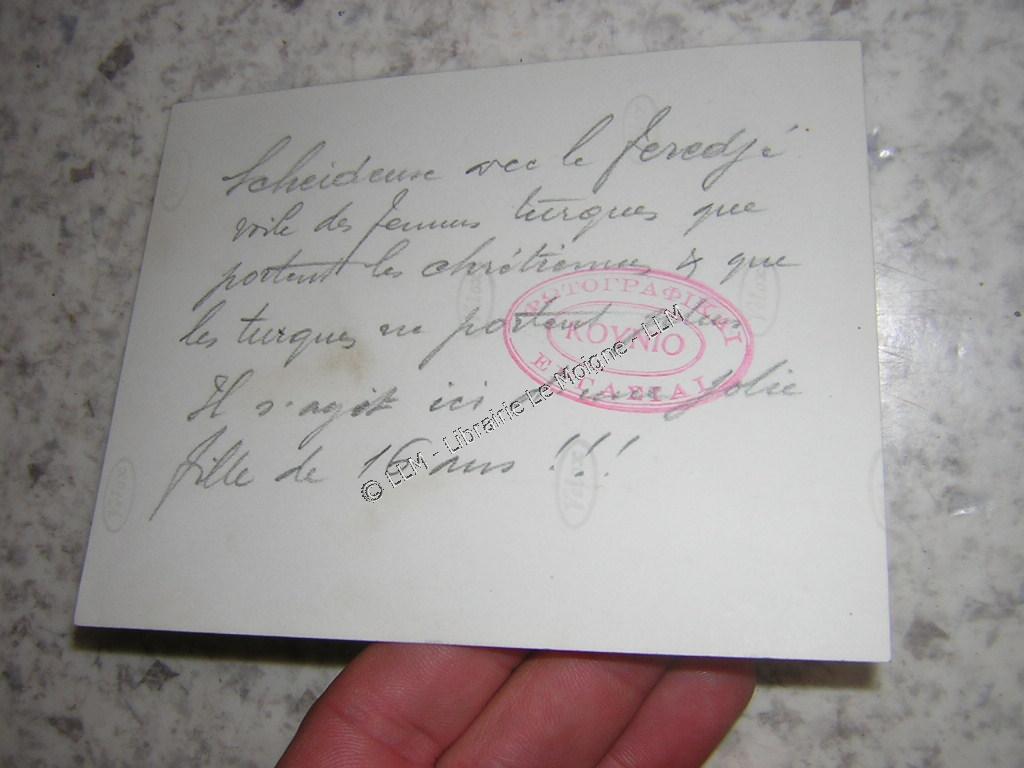 Scheideuse avec le feredjé
voile des femmes turques que
portent les chrétiennes & que
les turques ne portent plus
Il s'agit ici d'une jolie
fille de 16 ans !!!
ΚΟΥΝΙΟ
© LLM - Librairie Le Moigne - LLM
Velox
Velox
Velox
Velox